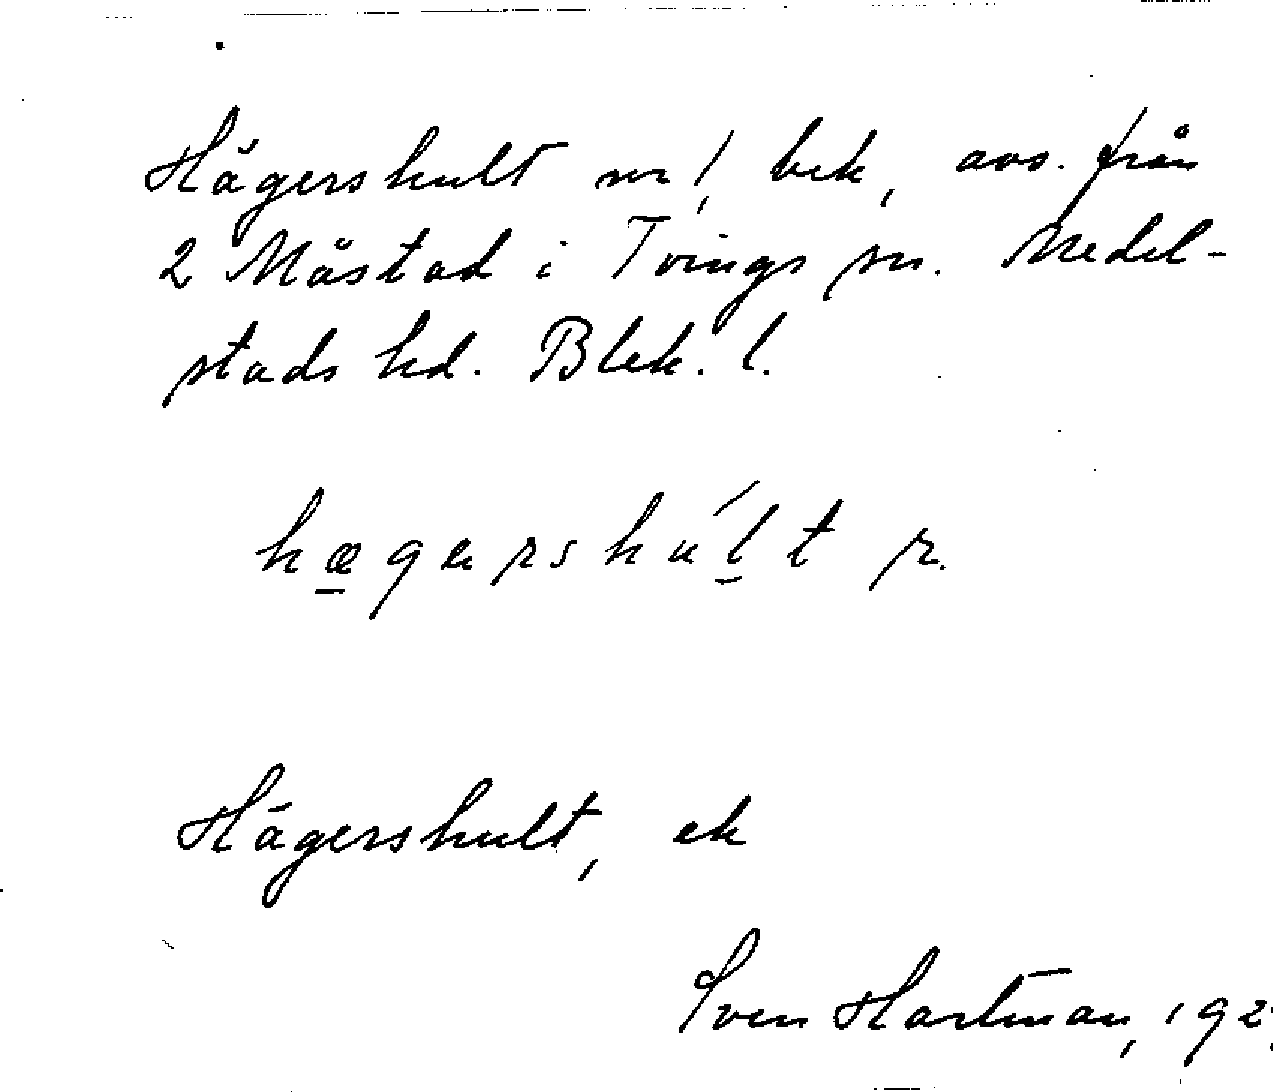 Hägershult nr 1, bek, avs. från
2 Måstad i Tvings sn. Medel-
stads hd. Blek. l.
hægershúlt r.
Hägershult, ek
Sven Hartman, 192